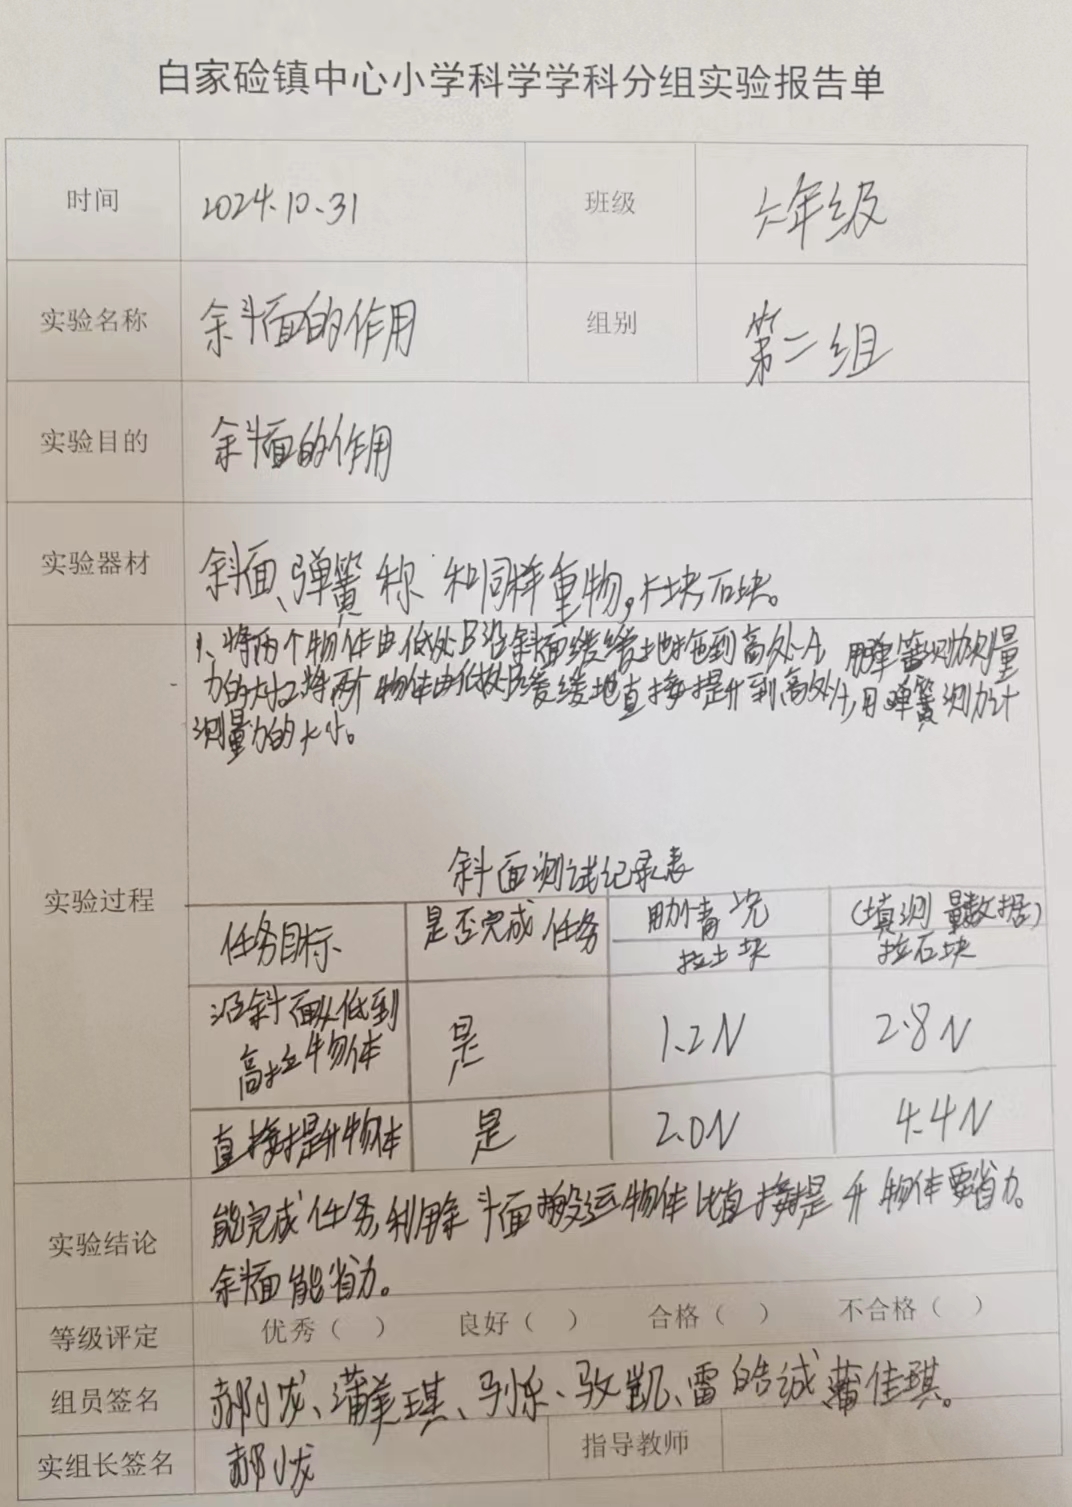 白家硷镇中心小学科学学科分组实验报告单
时间 2024.10.31 班级 六年级
实验名称 斜面的作用 组别 第二组
实验目的 斜面的作用
实验器材 斜面、弹簧称 和同样重物,木块石块。
1、将两个物体由低处B沿斜面缓缓地拖到高处A,用弹簧测力测量
力的大小2.将两个物体由低处B缓缓地直接提升到高处A,用弹簧测力计
测量力的大小。
实验过程
斜面测试记录表
任务目标、 是否完成任务 用力情况 (填测量数据)
拉土块 拉石块
沿斜面从低到
高拉物体 是 1.2N 2.8N
直接提升物体 是 2.0N 4.4N
实验结论
能完成任务,利用斜面搬运物体比直接提升物体要省力。
斜面能省力。
等级评定 优秀( ) 良好( ) 合格( ) 不合格( )
组员签名 郝小龙、蒲美琪、 雷皓诚 佳琪。
实组长签名 郝小龙 指导教师